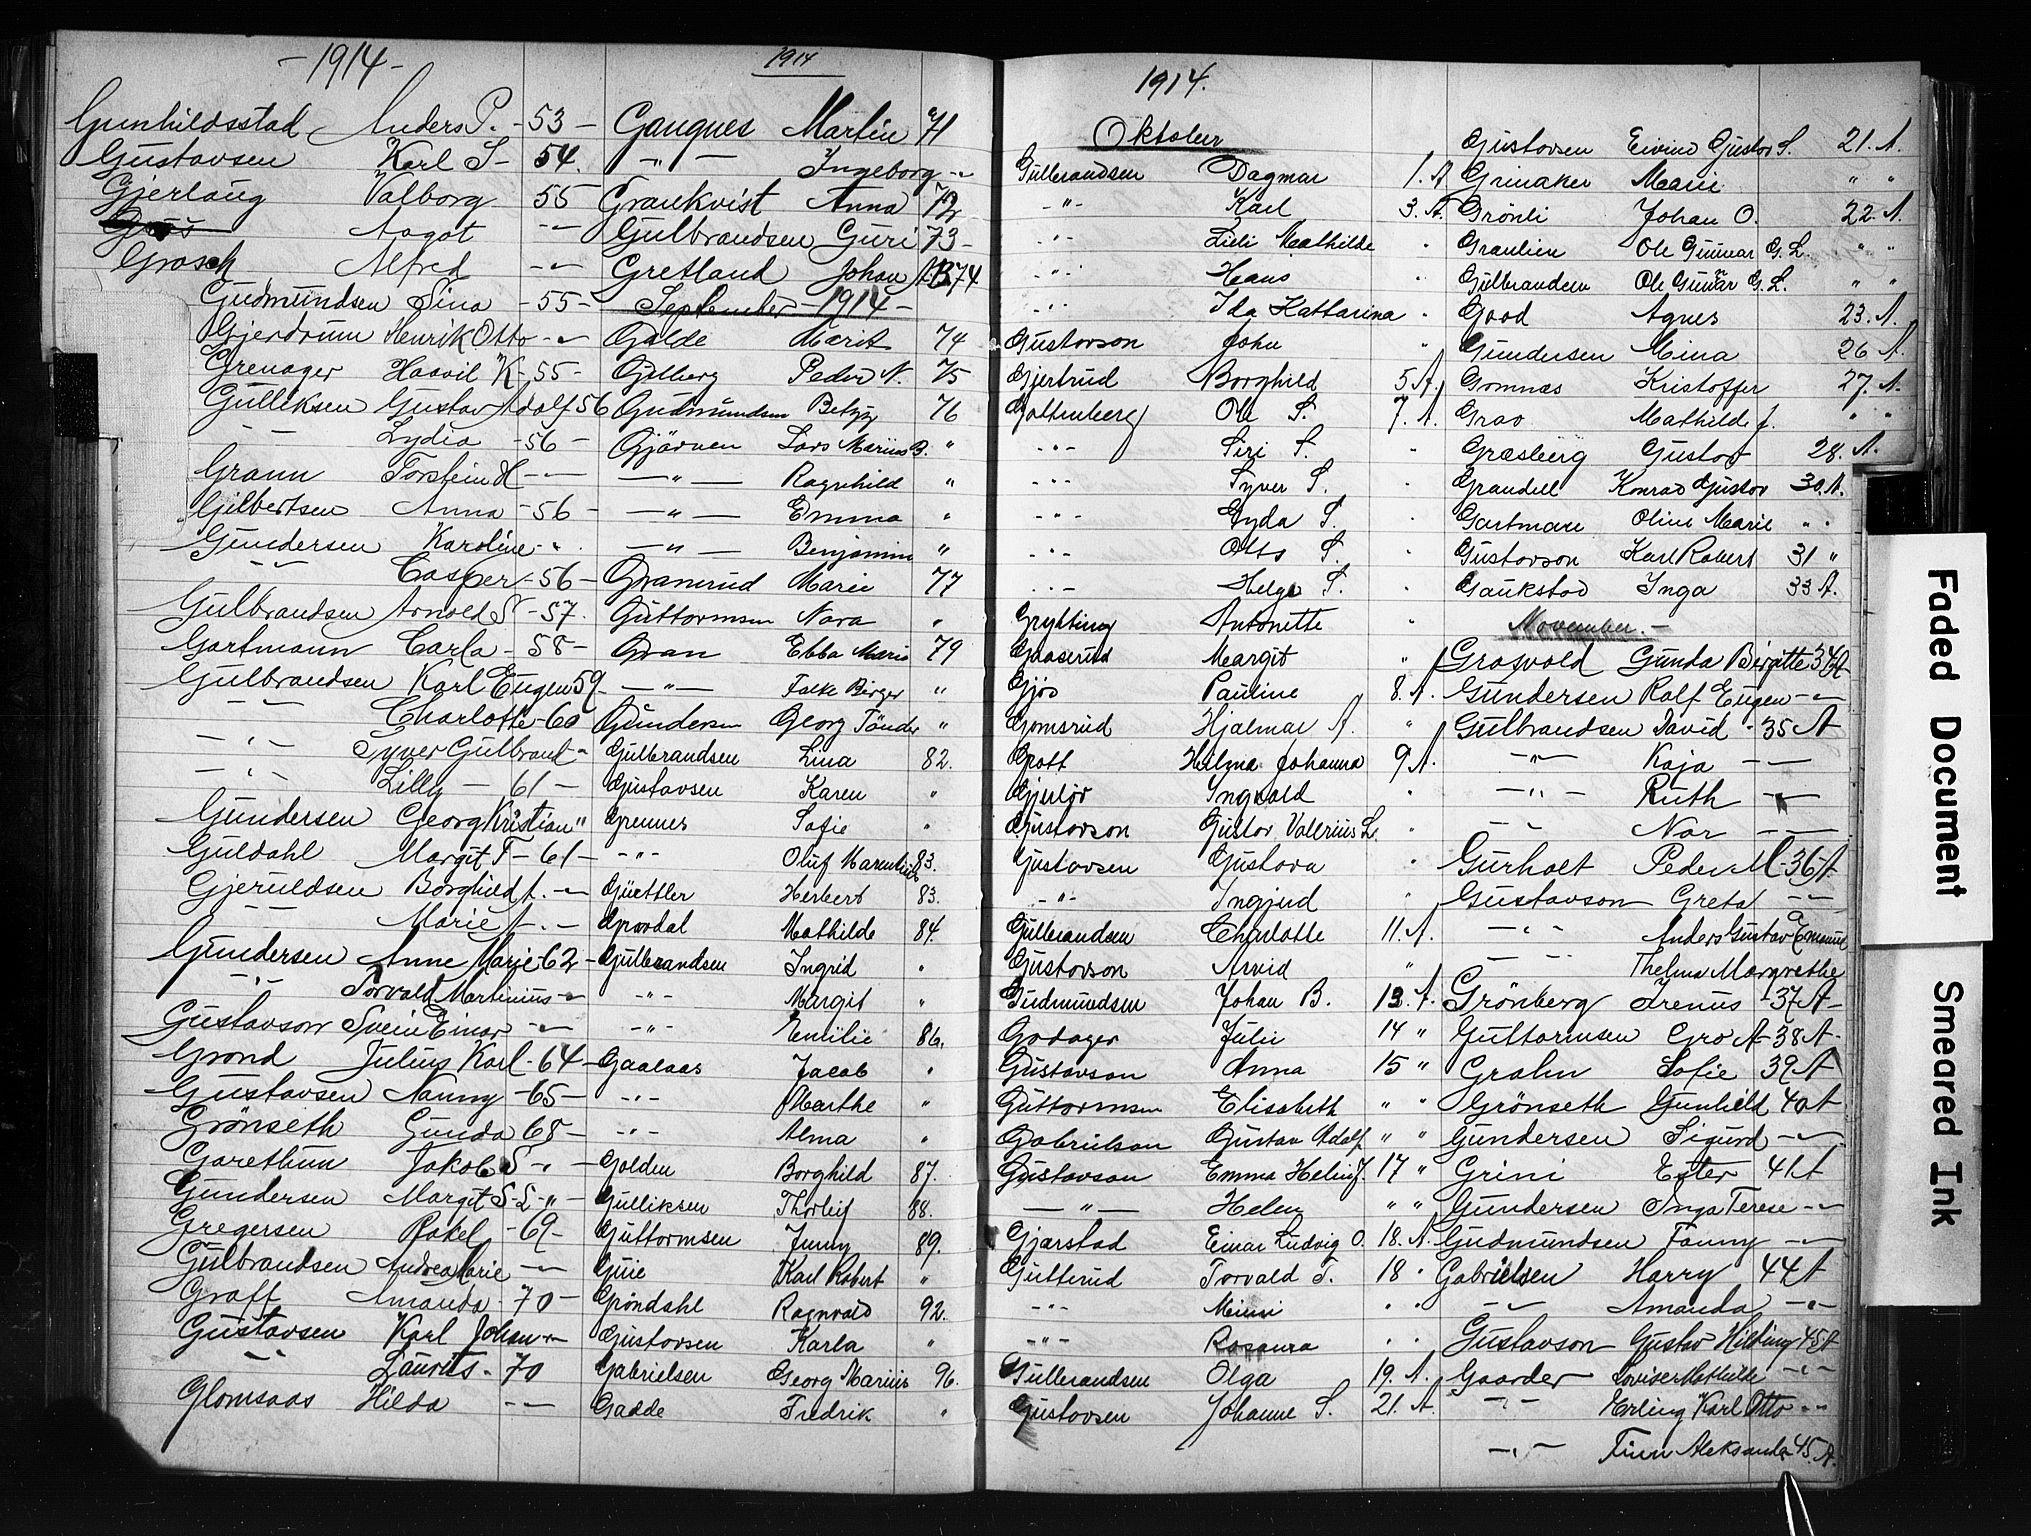 - 1914 -
Gunhildsstad Anders P. - 53 -
Gustavsen Karl S - 54.
Gjerlaug Valborg - 55
Aagot - " -
Grosch Alfred - " -
Gudmundsen Sina - 55 -
Gjerdrum Henrik Otto - " -
Grenager Haavil K - 55 -
Gulliksen Gustav Adolf 56
- " - Lydia - 56 -
Grann Torstein H - " -
Gilbertsen Anna - 56 -
Gundersen Karoline - " -
- " - Casper - 56 -
Gulbrandsen Arnold S - 57.
Gartmann Carla - 58 -
Gulbrandsen Karl Eugen 59
- " - Charlotte - 60
- " - Syver Gulbrant - "
- " - Lilly - 61 -
Gundersen Georg Kristian "
Guldahl Margit T - 61 -
Gjeruldsen Borghild A. - " -
- " - Marie A - " -
Gundersen Anne Marie - 62 -
- " - Torvald Martinius - " -
Gustavson Svein Einar - " -
Grond Julius Karl - 64 -
Gustavsen Nanny - 65 -
Grönseth Gunda 68 -
Garethun Jakob S - " -
Gundersen Margit S - L - " -
Gregersen Rakel - 69 -
Gulbrandsen Andrea Marie - " -
Graff Amanda - 70 -
Gustavsen Karl Johan - " -
- " - Laurits - 70
Glomsaas Hilda - " -
1914
Gaugnes Martin 71
- " - Ingeborg - "
Grankvist Anna 72
Gulbrandsen Guri 73 -
Gretland Johan A-B 74
September - 1914 -
Gjelde Marit 74
Gjelberg Peder N. 75
Gudmundsen Betzy 76
Gjörven Lars Marius B. "
- " - Ragnhild "
- " - Emma "
- " - Benjamin "
Gramrud Marie 77
Guttormsen Nora "
Gran Ebba Marie 79
- " - Falke Birger "
Gundersen Georg Tönder "
Gulbrandsen Lina 82.
Gustavsen Karen "
Grennes Sofie "
- " - Oluf 83.
Güettler Herbert 83.
Grovdal Mathilde 84.
Gulbrandsen Ingrid "
- " - Margit "
- " - Emilie 86.
Gaalaas Jacob "
- " - Marthe "
- " - Alma "
Golden Borghild 87.
Gulliksen Thorleif 88.
Guttormsen Jenny 89.
Guie Karl Robert "
Gröndahl Ragnvald 92.
Gustavsen Karla "
Gabrielsen Georg Marius 96.
Gadde Fredrik "
1914.
Oktober
Gulbrandsen Dagmar 1. A
- " - Karl 3. A.
- " - Lilli Mathilde "
- " - Hans
- " - Ida Kattarina "
Gustavson John "
Gjertrud Borghild 5. A.
Goltenberg Ole S. 7. A.
- " - Siri S. "
- " - Syver S. "
- " - Gyda S. "
- " - Otto S. "
- " - Helge S. "
Grytting Antonette "
Gaaserud Margit "
Gjös Pauline 8. A.
Gomsrud Hjalmar A. "
Gott Hilma Johanna 9 A.
Gjerlöv Ingvald "
Gustavson Gustav Valerius L. "
Gustavsen Gustava "
- " - Ingjerd "
Gulbrandsen Charlotte 11. A.
Gustavson Arvid "
Gudmundsen Johan B. 13. A.
Godager Julie 14 "
Gustavson Anna 15 "
Guttormsen Elisabeth " "
Gabrielson Gustav Adolf " "
Gustavson Emma Helin J. 17 "
- " - Helen " "
Gjarstad Einar Ludvig O. 18. A.
Gutterud Torvald T. 18 "
- " - Minni " "
- " - Rosaura " "
Gulbrandsen Olga 19. A.
Gustavsen Johanne S. 21. A.
Gustavsen Eivind Gustav S. 21. A.
Grinaker Marie " "
Grönli Johan O. 22. A.
Graulien Ole Gunnar G. L. " "
Gulbrandsen Ole Gunnar G. L. " "
Good Agnes 23. A.
Gundersen Mina 26 A.
Gomnæs Kristoffer 27. A.
Grav Mathilde J. " "
Græsberg Gustav 28. A.
Grandell Konrad Gustav 30. A.
Gartman Oline Marie " "
Gustavson Karl Robert 31 "
Gaukstad Inga 33 A.
November. -
Grasvold Gunda Birgitte 34 A
Gundersen Rolf Eugen - " -
Gulbrandsen David - 35 A
- " - Kaja - " -
- " - Ruth - " -
- " - Nar - " -
Gurholt Peder M - 36 - A
Gustavson Greta - " -
- " - Anders Gustav Emanuel
- " - Thelma Margrethe
Grönberg Irenus - 37 A -
Guttormsen Gro A - 38 A -
Grahn Sofie 39 A
Grönseth Gunhild 40 A
Gundersen Sigurd - " -
Grini Ester 41 A
Gundersen Inga Terese - " -
Gudmundsen Fanny - " -
Gabrielsen Harry 44 A
- " - Amanda - " -
Gustavson Gustav Hilding 45. A
Gaarder Lovise Mathilde - " -
- " - Erling Karl Otto - " -
- " - Finn Aleksander 45. A.
Faded Document
Smeared Ink